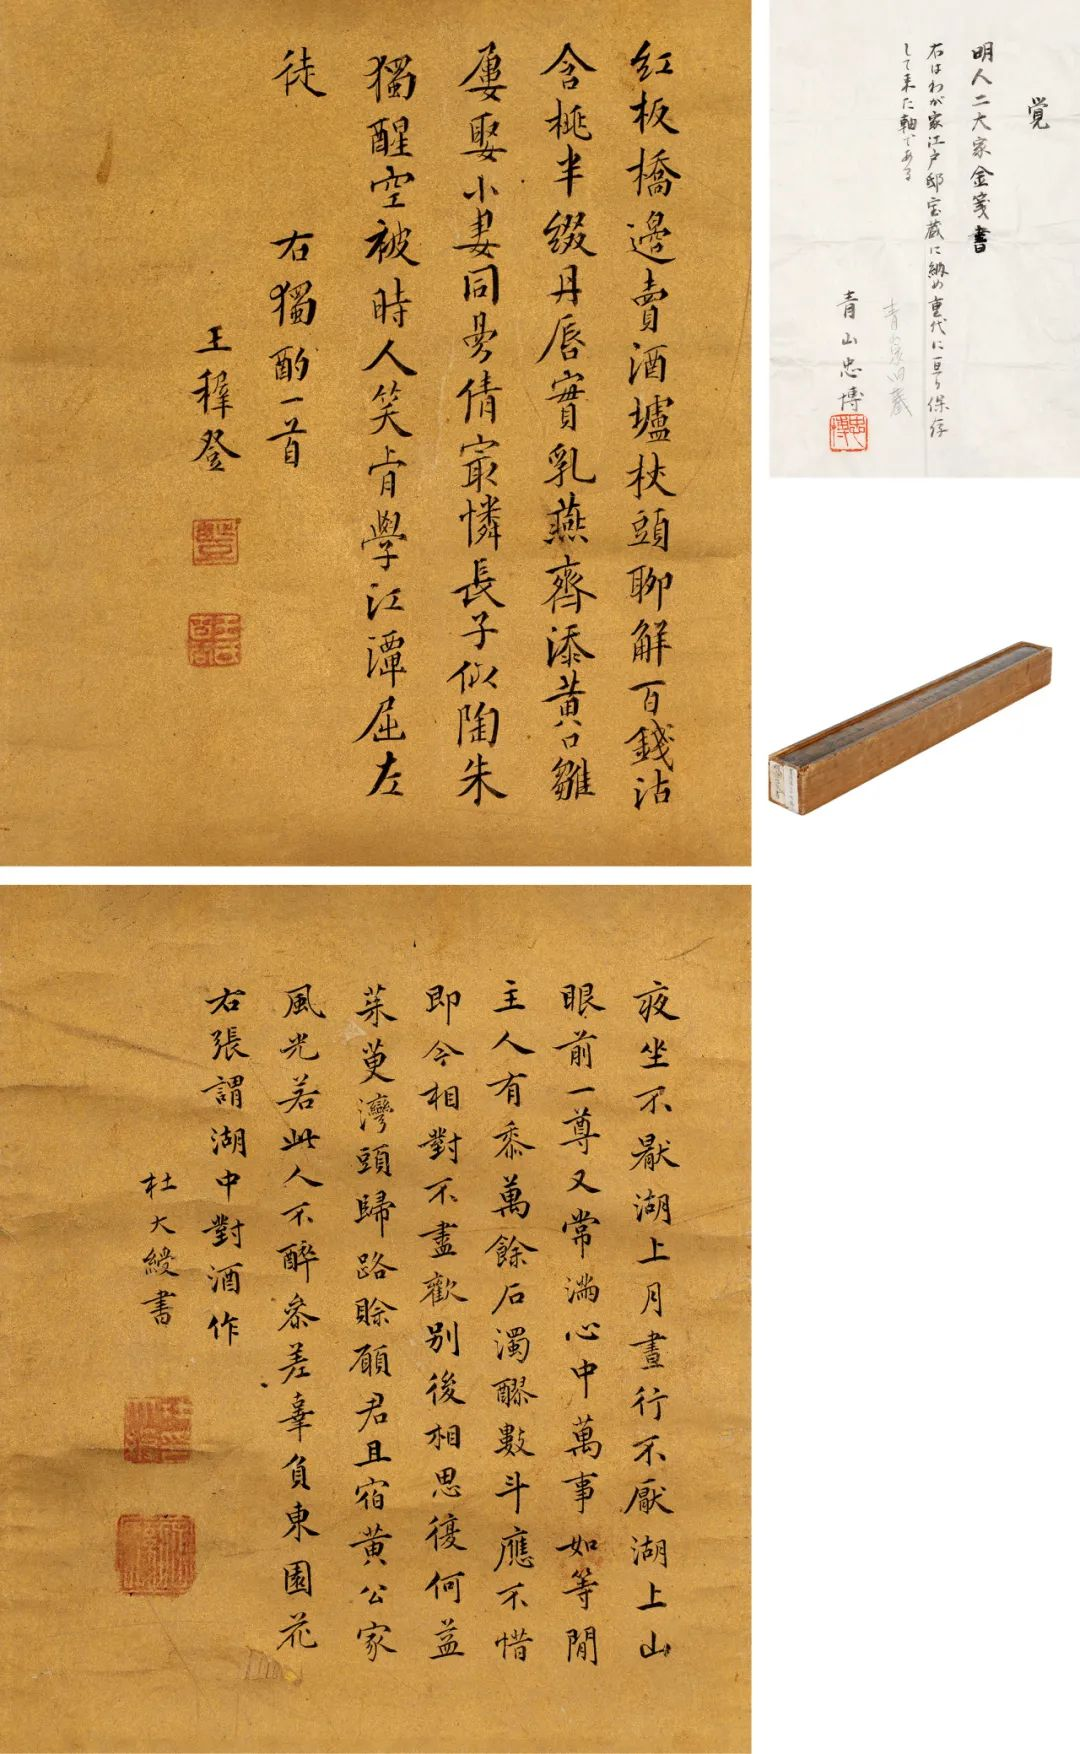 紅板橋邊賣酒壚杖頭聊解百錢沽
含桃半綴丹唇實乳燕齊添黃口雛
屢娶小妻同曼倩最憐長子似陶朱
獨醒空被時人笑肯學江潭屈左
徒
右獨酌一首
王穉登
覚
明人二大家金箋書
右はわが家江戸邸宝蔵に納め重代に亘り保存
して来た軸である
青山忠博
忠博
夜坐不厭湖上月晝行不厭湖上山
眼前一尊又常滿心中萬事如等閒
主人有黍萬餘石濁醪數斗應不惜
即今相對不盡歡別後相思復何益
茱萸灣頭歸路賒願君且宿黃公家
風光若此人不醉參差辜負東園花
右張謂湖中對酒作
杜大綬書